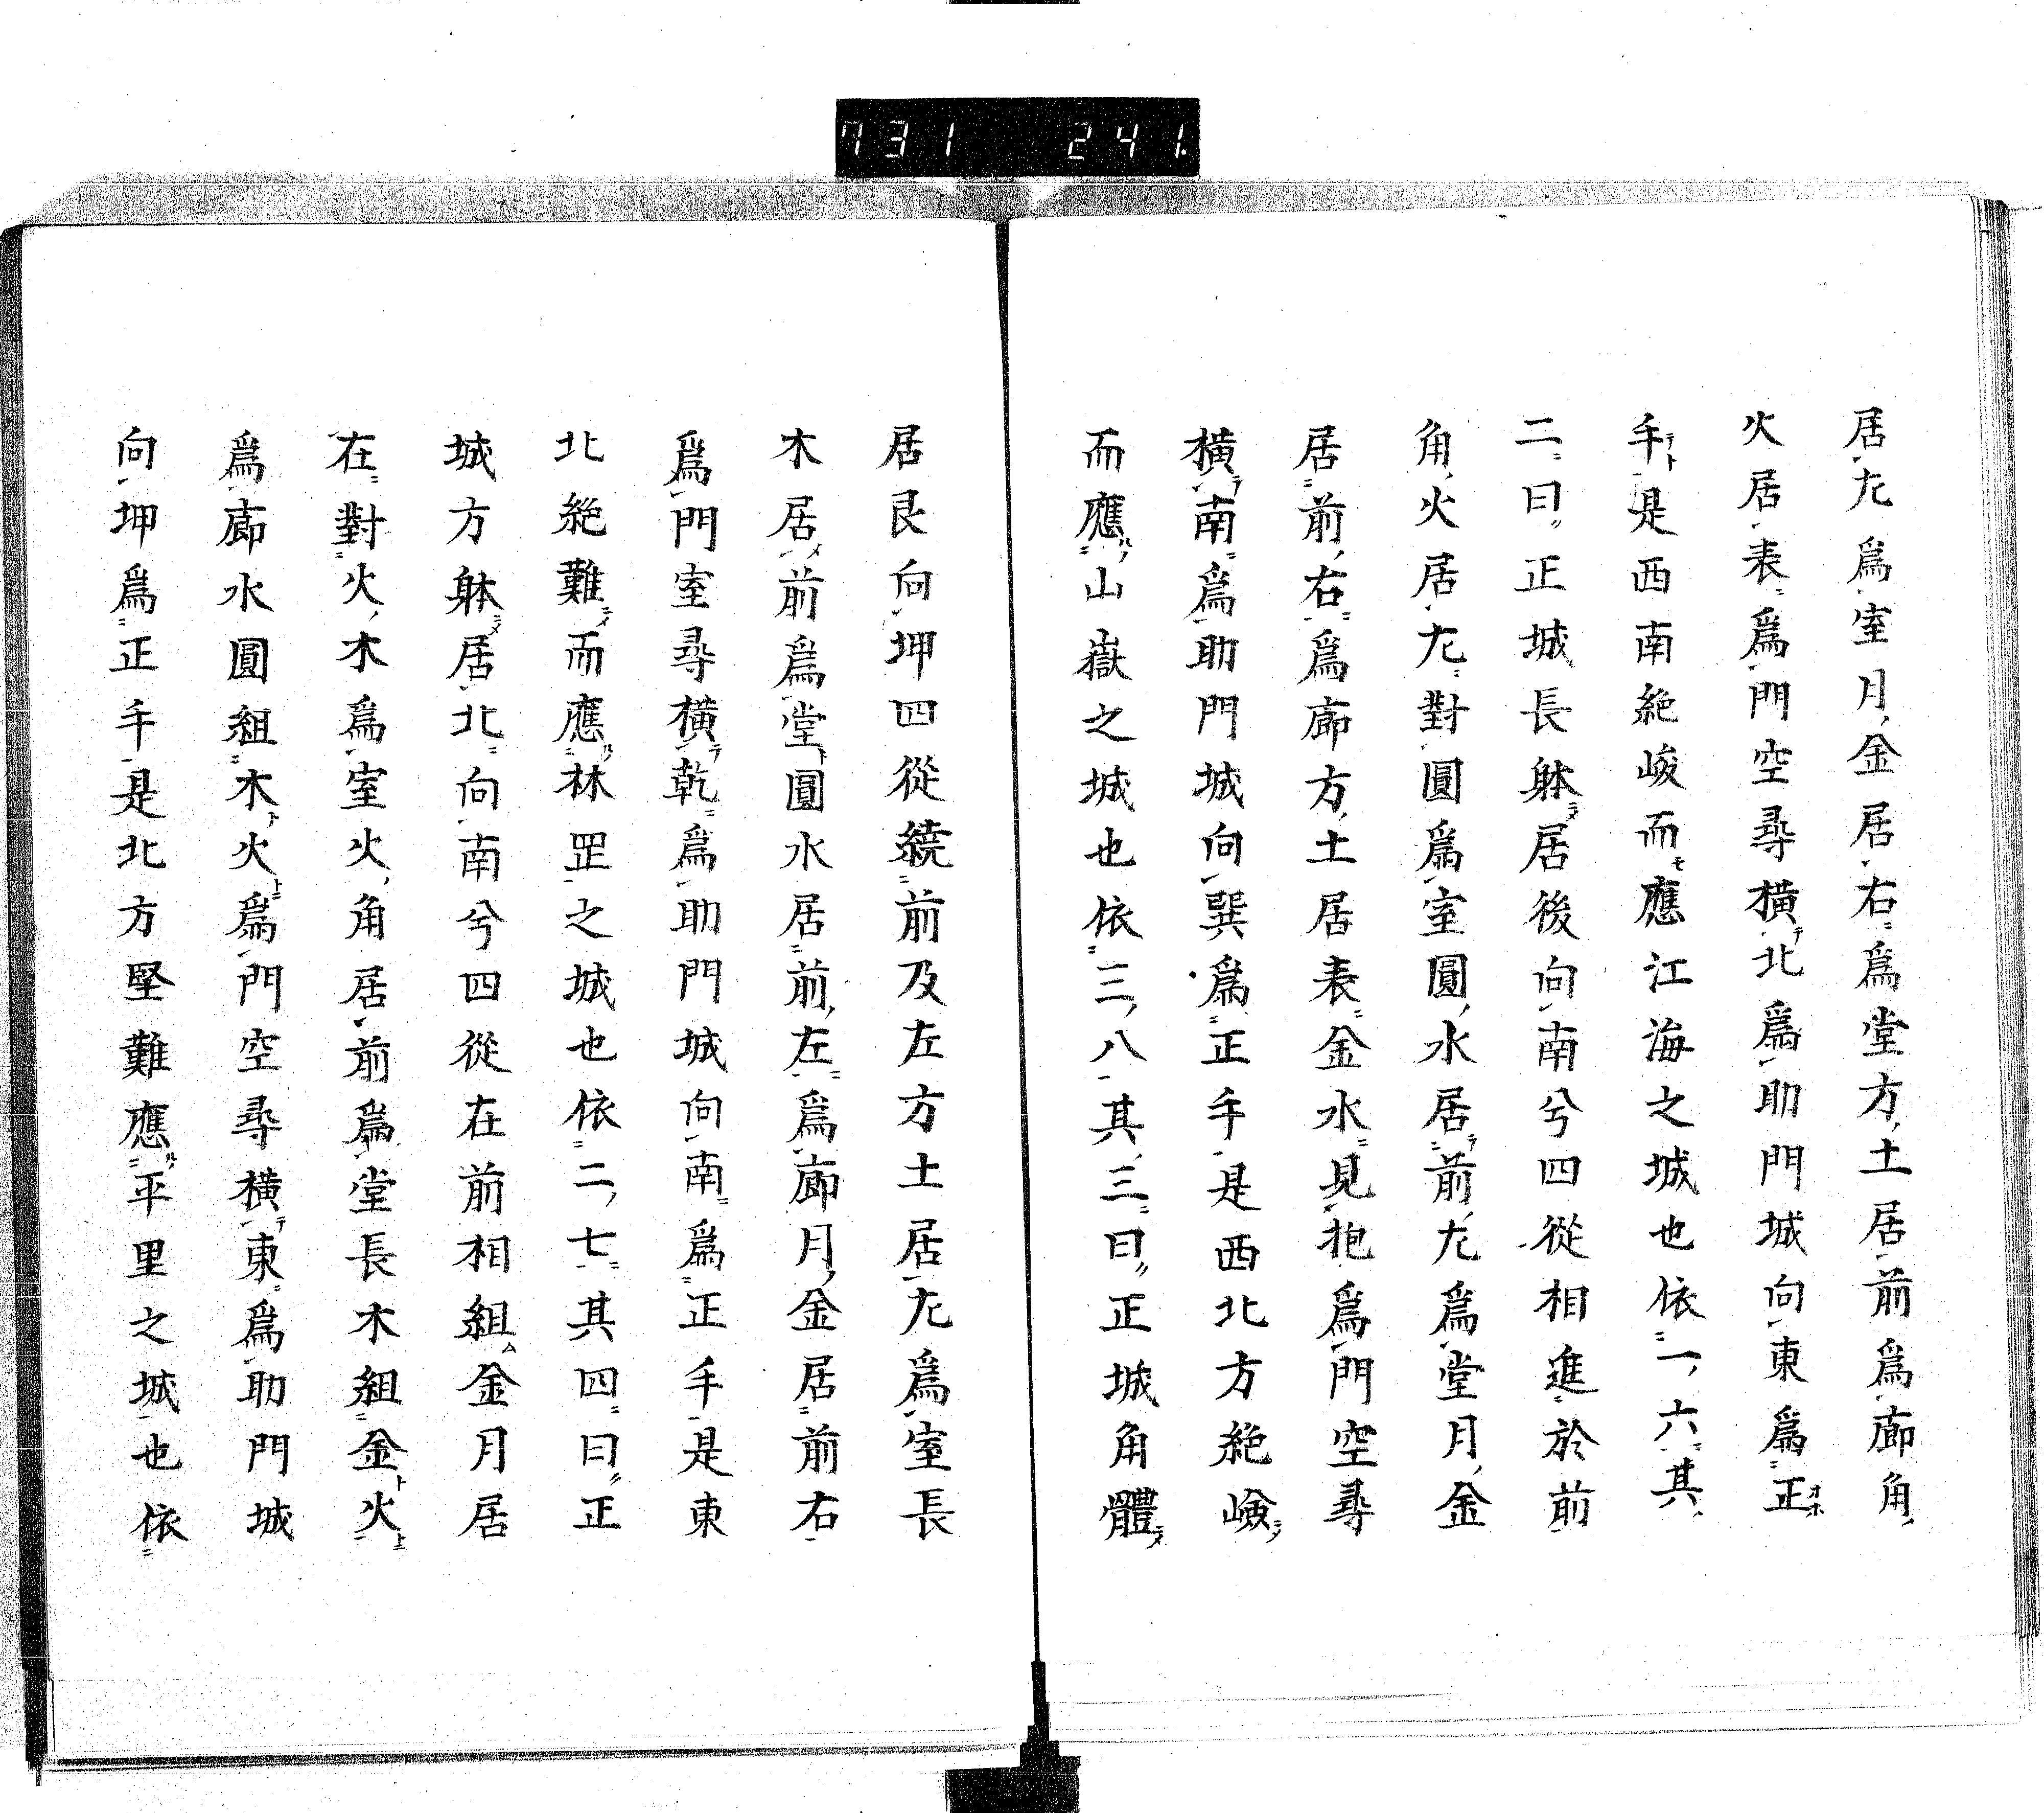 731 241.
居尢爲室月金居右爲堂方土居前爲廊角
火居表爲門空尋横北爲助門城向東爲正
手是西南絶峻而應江海之城也依一六其
二曰正城長躰居後向南兮四從相進於前
角火居尢對圓爲室圓水居前尢爲堂月金
居前右爲廊方土居表金水見抱爲門空尋
横南爲助門城向巽爲正手是西北方絶嶮
而應山嶽之城也依三八其三曰正城角體
居艮向坤四從繞前及左方土居尢爲室長
木居前爲堂圓水居前左爲廊月金居前右
爲門室尋横乾爲助門城向南爲正手是東
北絶難而應林罡之城也依二七其四曰正
城方躰居北向南兮四從在前相組金月居
在對火木爲室火角居前爲堂長木組金火
爲廊水圓組木火爲門空尋横東爲助門城
向坤爲正手是北方堅難應平里之城也依